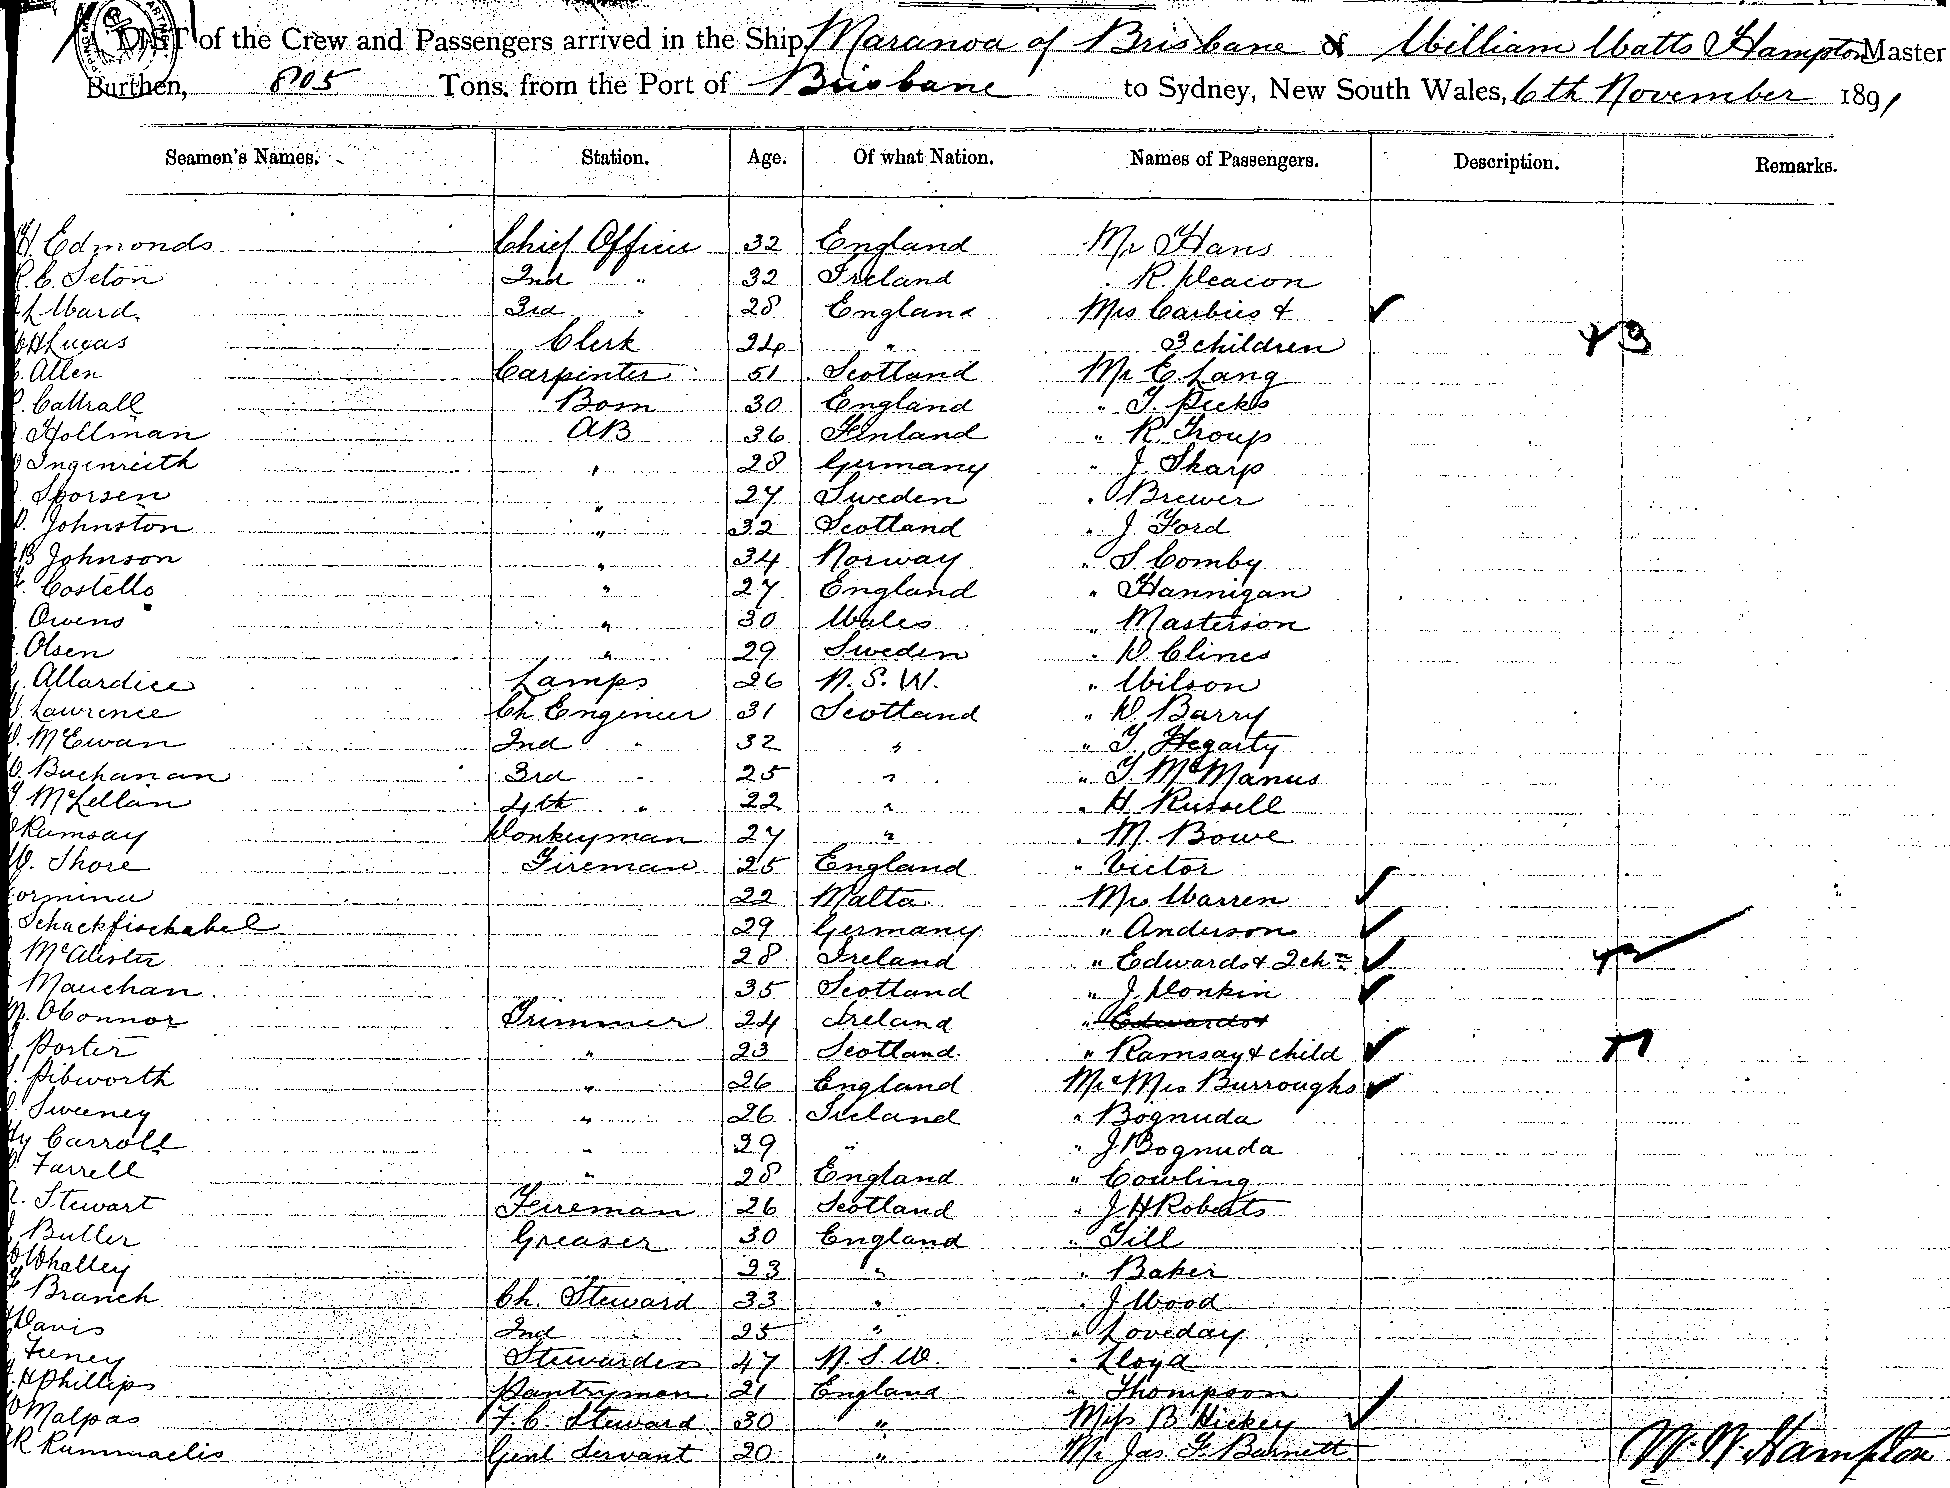 LIST of the Crew and Passengers arrived in the Ship Maranoa of Brisbane of William Watts Hampton Master
Burthen, 805 Tons. from the Port of Brisbane to Sydney, New South Wales, 6th November 1891
Seamen's Names. Station. Age. Of what Nation. Names of Passengers. Description. Remarks.
H. Edmonds Chief Officer 32 England Mr Hans
R. C. Seton 2nd " 32 Ireland " R. Deacon
L Ward. 3rd " 28 England Mrs Carbies +
H Lucas Clerk 24 " 3 children +3
Allen Carpenter 51 Scotland Mr E. Lang
Cattrall Bosn 30 England " T. Pecks
Hollman AB 36 Finland " R. Troup
Ingenreith " 28 Germany " J Sharp
Sporsen " 27 Sweden " Brewer
Johnston " 32 Scotland " J Ford
B Johnson " 34 Norway " S. Comby
Costello " 27 England " Hannigan
Owens " 30 Wales " Masterson
Olsen " 29 Sweden " D. Clines
Allardice Lamps 26 N. S. W. " Wilson
Lawrence Ch Engineer 31 Scotland " D. Barry
McEwan 2nd " 32 " " T. Hegarty
Buchanan 3rd " 25 " " T McManus
McLellan 4th " 22 " " H Russell
Ramsay Donkeyman 27 " " M. Bowe
W. Shore Fireman 25 England " Victor
22 Malta Mrs Warren
Schackfischabel 29 Germany " Anderson
McAlister 28 Ireland " Edwards + 2 chn +2
Mauchan. 35 Scotland " J. Donkin
M. OConnor Trimmer 24 Ireland " Edwards +
Porter " 23 Scotland " Ramsay + child
Pibworth " 26 England Mr & Mrs Burroughs
Sweeney " 26 Ireland " Bognuda
Hy Carroll " 29 " " J Bognuda
Farrell " 28 England " Cowling
Stewart Fireman 26 Scotland " J H Roberts
Butler Greaser 30 England " Till
Whalley 23 " " Baker
Branch Ch. Steward 33 " " J Wood
Davis 2nd " 25 " " Loveday
Feeney Stewardess 47 N. S. W. " Lloyd
H Phillips Pantryman 21 England " Thompson
Malpas F. C. Steward 30 " Miss B Hickey
R Rummaelis Genl Servant 20 " Mr Jas. F. Burnett W. W. Hampton